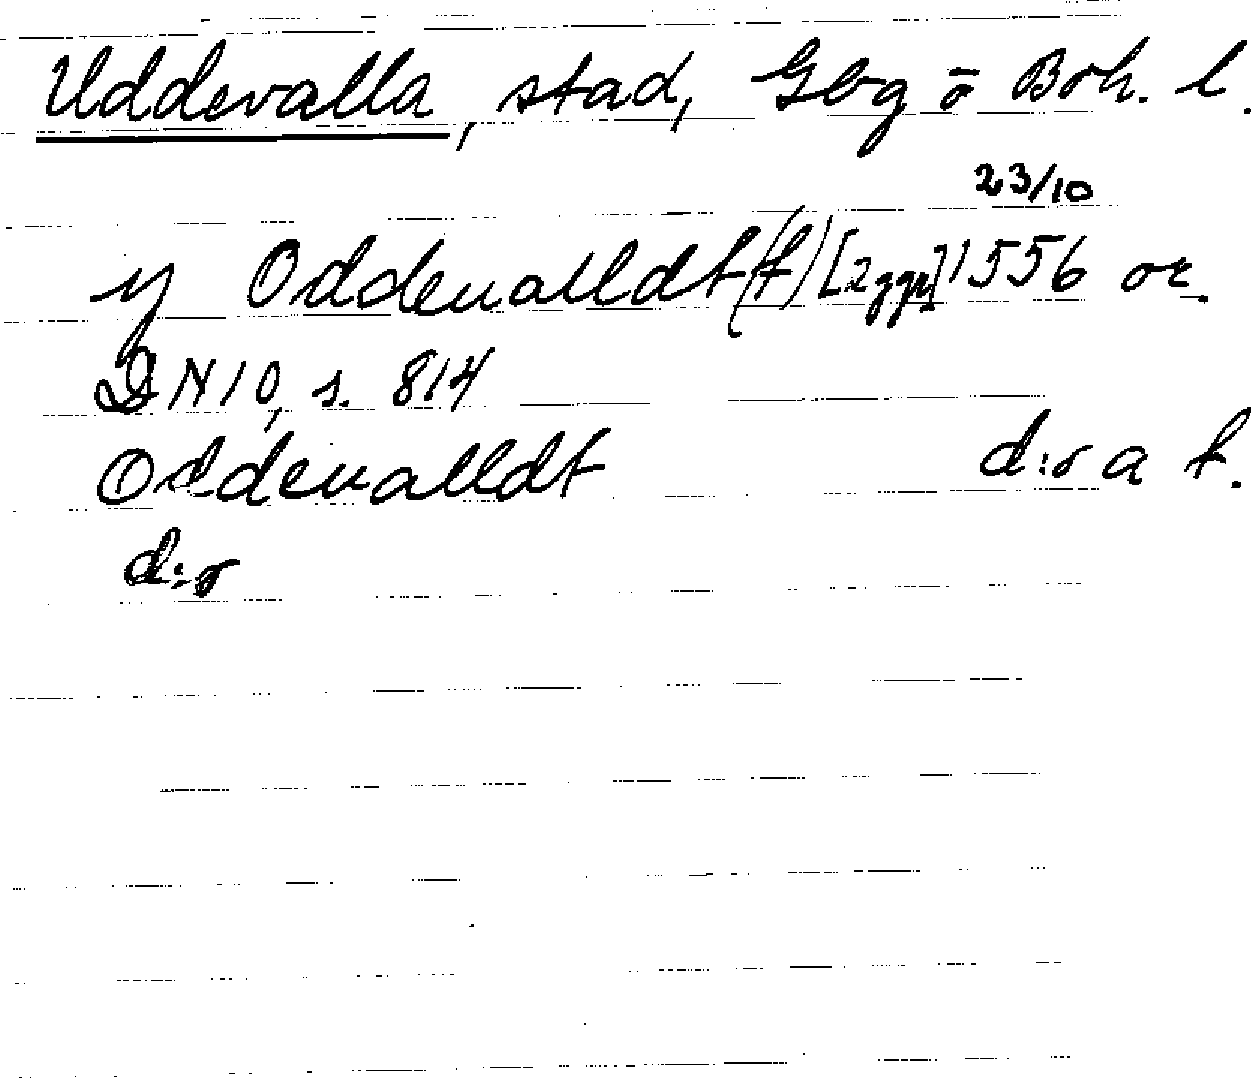 Uddevalla, stad, Gbg o Boh. l.
23/10
y Oddeualldt(t) [2 ggr] 1556 or.
DN 10, s. 814
Oddeualldt d:o a t.
d:o